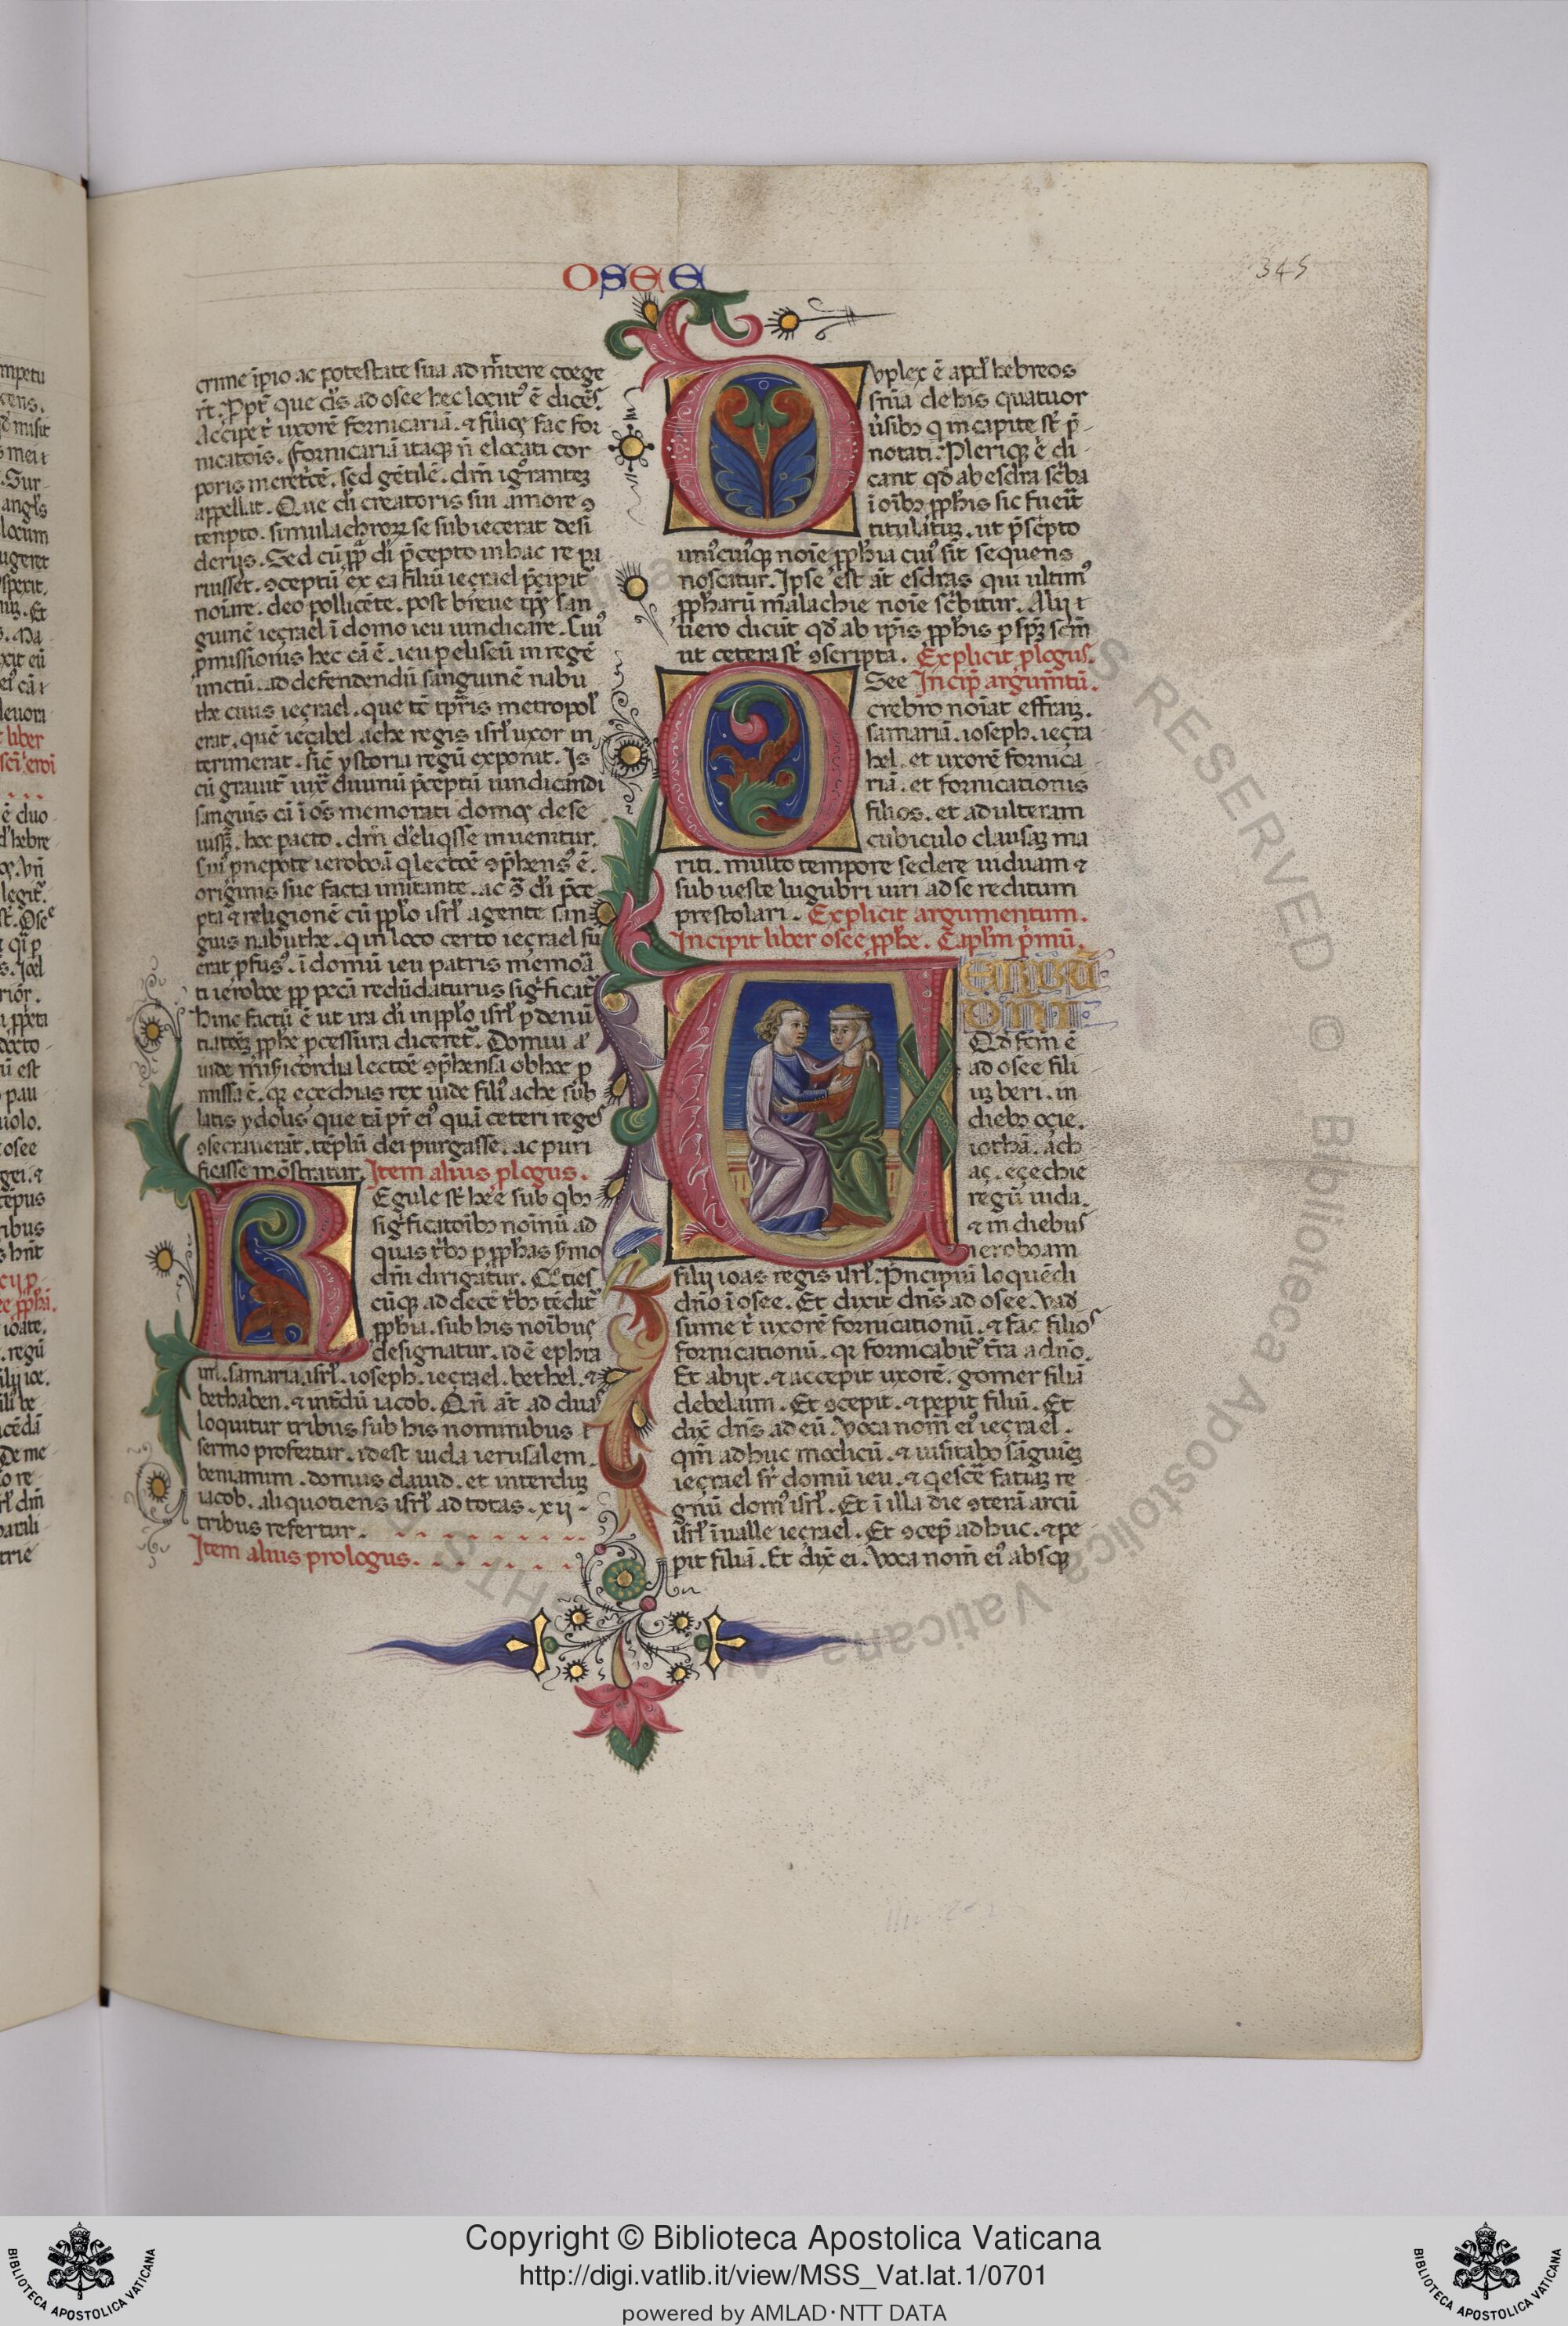 OSEE
345
crime ip̄io ac potestate sua ad m̄itere coege
rt̄. Ꝓpt̄ que dn̄s ad osee hec locut᷒ ē dicēs.
Accipe t᷒ uxorē fornicariā. ⁊ filios fac for
nicatōis. Fornicariā itaqꝫ n̄ elocati cor
poris meretcē. sed gētilē. dm̄ ignorantez
appellat. Que di creatoris sui amore ꝯ
tenpto. simulachroꝝ se subiecerat desi
derijs. Sed cū ꝓph̄a di p̄cepto in hac re pa
ruisset. ꝯceptū ex ea filiū ieçrael p̄cipit᷒
noiare. deo pollicēte. post breue tp̄s san
guinē ieçrael ī domo ieu uindicare. Cui᷒
ꝓmissionis hec cā ē. ieu ꝑ eliseū in regē
unctū. ad defendendū sanguinē nabu
the ciuis ieçrael. que tē tp̄ris metropol᷒
erat. quē ieçabel ache regis isrl̄ uxor in
terimerat. sic̄ ystoria regū exponit. Is
cū grauit᷒ iuxᷓ diuinū p̄ceptū uindicandi
sanguis cā ī os̄ memorati domus dese
uissꝫ. hoc pacto. dm̄ deliq̄sse inuenitur.
Sui ꝓnepote ieroboā q lectōē ꝯp̄hens᷒ ē.
originis sue facta imitante. ac ꝯᷓ di p̄ce
pta ⁊ religionē cū pplo isrl̄ agente san
guis nabuthe. q in loco certo ieçrael fu
erat ꝓfus᷒. ī domū ieu patris memoᷓ
ti ieroboe ꝓp pecā redūdaturus sig̓ficat᷒
hinc factū ē ut ira di in pplo isrl̄ ꝑ denū
tiatōeꝫ ꝓphe ꝓcessura diceret᷒. Domui a᷒
iude mīsicordia lectōē ꝯp̄hensa ob hoc ꝓ
missa ē. qꝫ eçechias rex iude fili᷒ ache sub
latis ydolis que tā pr̄ ei᷒ quā ceteri reges
ꝯsecrauerāt. tēplū dei purgasse. ac puri
ficasse mōstratur. Item alius ꝓlogus.
Regule st᷒ hēe sub qbꝫ
sig̓ficatōibꝫ noīnū ad
quas tr̄bꝫ ꝑ ꝓphas s̄mo
dm̄ dirigatur. Qͦties
cūqꝫ ad decē tr̄bꝫ tēdit᷒
ꝓphia. sub his noībus
designatur. id ē ephra
im. samaria. isrl̄. ioseph. ieçrael. bethel. ⁊
bethaben. ⁊ int̄dū iacob. Qn̄ āt ad duas
loquitur tribus sub his nominibus
sermo profertur. id est iuda ierusalem.
beniamin. domus dauid. et interduꝫ
iacob. aliquotiens isrl̄ ad totas. xij.
tribus refertur.
Item alius prologus.
Duplex ē apd̓ hebreos
sn̄ia de his quatuor
ūsibꝫ q in capite st᷒ p̄
notati. Plerique di
cant qd̓ ab esdra scͥba
ī oībꝫ ꝓphis sic fuerīt
titulatuꝫ. ut p̄scͥpto
uni᷒cui᷒qꝫ noīe ꝓphia cui᷒ sit sequens
noscatur. Ipse est āt esdras qui ultim᷒
ꝓpharū malachie noīe scͥbitur. Alij
uero dicūt qd̓ ab ip̄is ꝓphis ꝑ sp̄m scm̄
ut cetera st᷒ ꝯscripta. Explicit ꝓlogus.
Osee Incip̄ argum̄tū.
crebro noīat effraꝫ.
samariā. ioseph. ieçra
hel. et uxorē fornica
riā. et fornicationis
filios. et adulteram
cubiculo clausaꝫ ma
riti. multo tempore sedere uiduam ⁊
sub ueste lugubri uiri ad se reditum
prestolari. Explicit argumentum.
Incipit liber osee ꝓphe. Caplm̄ p̄mū.
VERBŪ
DOMI
Qd̓ fcm̄ ē
ad osee fili
uꝫ beri. in
diebꝫ oçie.
iothā. ach
aç. eçechie
regū iuda.
⁊ in diebus
ieroboam
filij ioas regis isrl̄. Pͥncipiū loquēdi
dn̄o ī osee. Et dixit dn̄s ad osee. Vad᷒
sume t᷒ uxorē fornicationū. ⁊ fac filios
fornicationū. qꝫ fornicabit᷒ tr̄ra a dn̄o.
Et abijt. ⁊ accepit uxorē. gomer filiā
debelaim. Et ꝯcepit. ⁊ peperit filiū. Et
dix̄ dn̄s ad eū. Voca nom̄ ei᷒ ieçrael.
qm̄ adhuc modicū. ⁊ uisitabo sāguiēꝫ
ieçrael sr̄ domū ieu. ⁊ qescē̄ faciaꝫ re
gnū dom᷒ isrl̄. Et ī illa die ꝯterā arcū
isrl̄ ī ualle ieçrael. Et ꝯcep̄ adhuc. ⁊ pe
pit filiā. Et dix̄ ei. Voca nom̄ ei᷒ absqꝫ
Copyright © Biblioteca Apostolica Vaticana
http://digi.vatlib.it/view/MSS_Vat.lat.1/0701
powered by AMLAD·NTT DATA
BIBLIOTECA APOSTOLICA VATICANA
BIBLIOTECA APOSTOLICA VATICANA